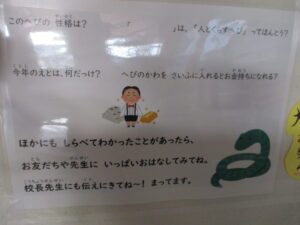 このへびの 性格は？
」は、「人とくらすへび」ってほんとう？
今年のえとは、何だっけ？
へびのかわを さいふに入れるとお金持ちになれる？
ほかにも しらべてわかったことがあったら、
お友だちや先生に いっぱいおはなしてみてね。
校長先生にも伝えにきてね～！まってます。